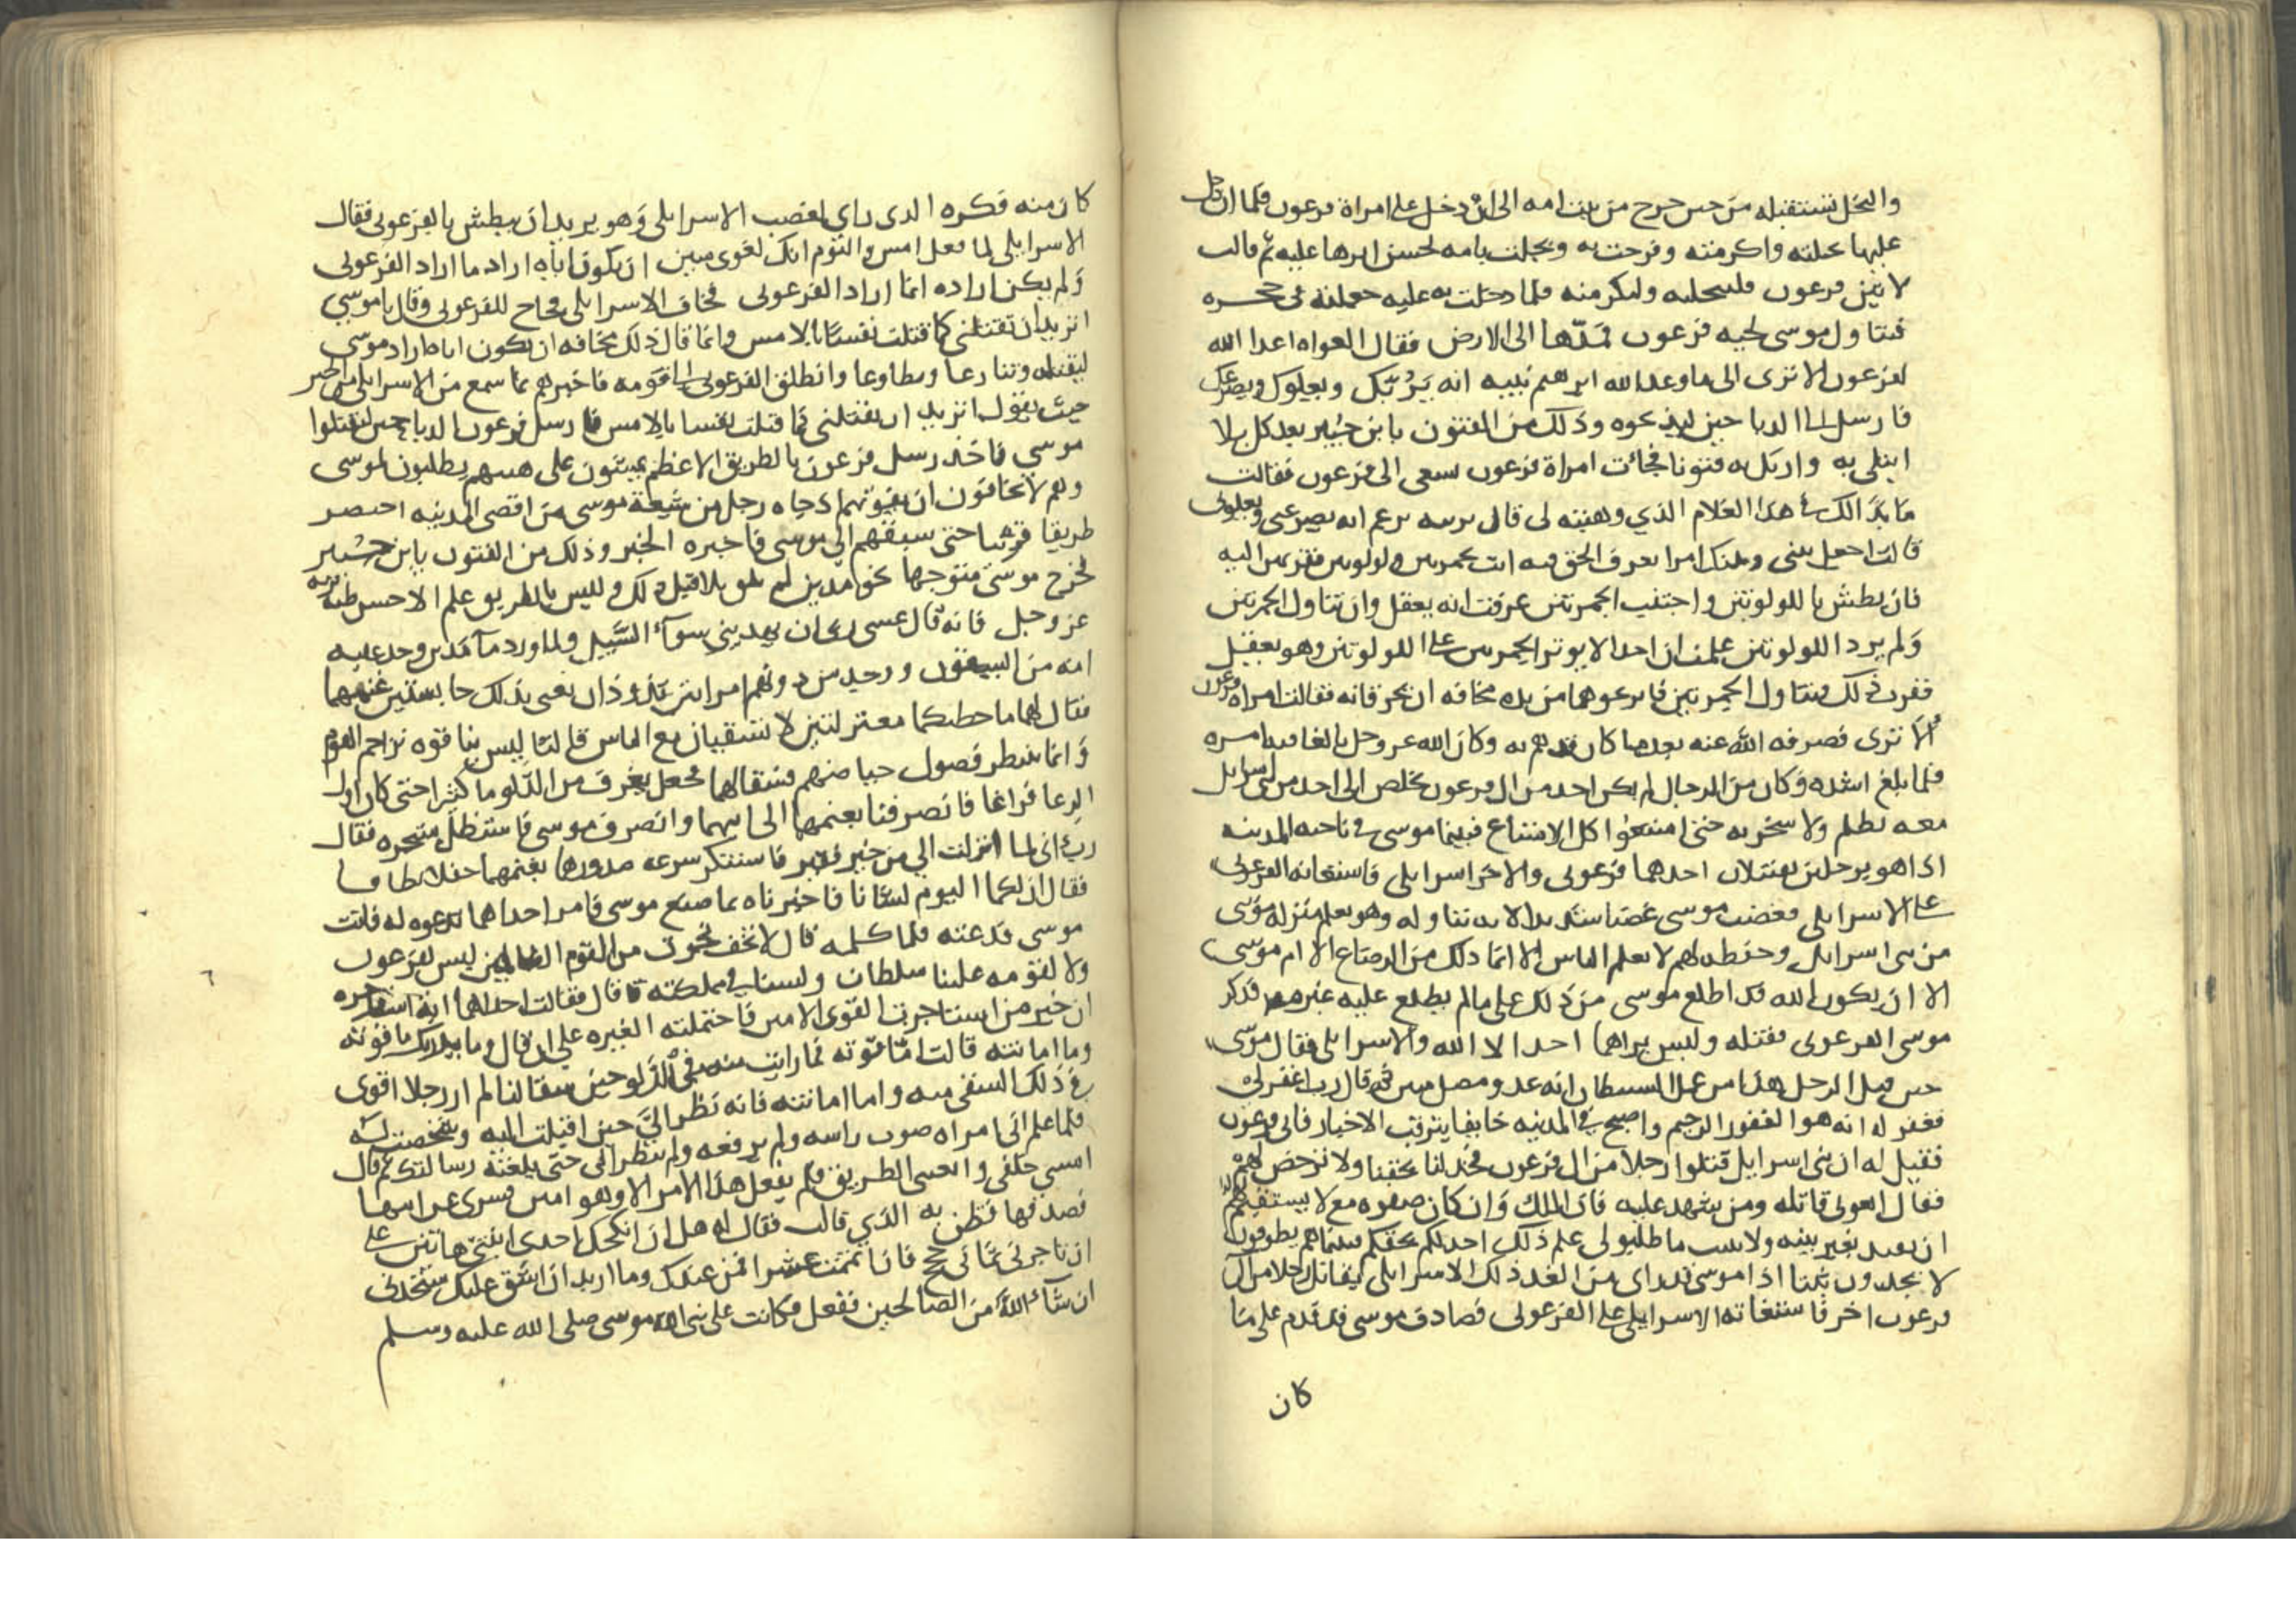 والنحل تستقبله من حين خرج من بيت امه الى ان دخل على امراة فرعون فلما ان دخل
عليها نحلته واكرمته وفرحت به ونحلت بامه لحسن اثرها عليه ثم قالت
لاتين فرعون فلينحلنه وليكرمنه فلما دخلت به عليه جعلته في حجره
فتناول موسى لحيه فرعون فمدها الى الارض فقال الغواه اعدا الله
لفرعون الا ترى الى ما وعد الله ابرهيم نبيه انه يرثك ويعلوك ويصرعك
فارسل الى الدباحين ليذبحوه وذلك من الفتون يا بن جبير بعد كل بلا
ابتلى به واريك به فتونا فجائت امراة فرعون تسعى الى فرعون فقالت
ما بدا لك في هذا الغلام الذي وهبته لى قال ترينه يزعم انه يصرعنى ويعلونى
قالت اجعل بينى وبينك امرا تعرف الحق فيه ايت بجمرتين ولولوتين فقربهن اليه
فان بطش باللولوتين واجتنب الجمرتين عرفت انه يعقل وان تناول الجمرتين
ولم يرد اللولوتين علمت ان احدا لا يوثر الجمرتين على اللولوتين وهو يعقل
فقرب ذلك فتناول الجمرتين فانزعوهما من يده مخافه ان تحرقانه فقالت امراة فرعون
الا ترى فصرفه الله عنه بعد ما كان قد هم به وكان الله عز وجل بالغا فيه امره
فلما بلغ اشده وكان من الرجال لم يكن احد من ال فرعون يخلص الى احد من بنى اسرايل
معه بظلم ولا سخريه حتى امتنعوا كل الامتناع فبينما موسى في ناحيه المدينه
اذا هو برجلين يقتتلان احدهما فرعونى والاخر اسرايلى فاستغاثه الفرعونى
على الاسرايلى فغضب موسى غضبا شديدا لانه تناوله وهو يعلم منزله موسى
من بنى اسرايل وحفظه لهم لا يعلم الناس الا انما ذلك من الرضاع الا ام موسى
الا ان يكون الله قد اطلع موسى من ذلك على مالم يطلع عليه غيره فذكر
موسى الفرعونى فقتله وليس يراهما احد الا الله والاسرايلى فقال موسى
حين قتل الرجل هذا من عمل الشيطان انه عدو مضل مبين ثم قال رب اغفر لى
فغفر له انه هو الغفور الرحيم واصبح في المدينه خايفا يترقب الاخبار فاتى فرعون
فقيل له ان بنى اسرايل قتلوا رجلا من ال فرعون فخذ لنا بحقنا ولا ترخص لهم
فقال ابغونى قاتله ومن يشهد عليه فان الملك وان كان صفوه مع لا يستقيم
ان يقيد بغير بينه ولا ثبت فاطلبوا لى علم ذلك اخذ لكم بحقكم فبينماهم يطوفون
لا يجدون ثبتا اذا موسى قد راى من الغد ذلك الاسرايلى يقاتل رجلا من آل
فرعون اخر فاستغاثه الاسرايلى على الفرعونى فصادف موسى قد ندم على ما
كان
كان منه فكره الذى راى لغضب الاسرايلى وهو يريد ان يبطش بالفرعونى فقال
الاسرايلى لما فعل امس واليوم انك لغوى مبين ان يكون اياه اراد ما اراد الفرعونى
ولم يكن اراده انما اراد الفرعونى فخاف الاسرايلى فحاج للفرعونى وقال يا موسى
اتريد ان تقتلنى كما قتلت نفسا بالامس وانما قال ذلك مخافه ان يكون اياه اراد موسى
ليقتله وتنازعا وتطاوعا وانطلق الفرعونى الى قومه فاخبرهم بما سمع من الاسرايلى من الخبر
حيث يقول اتريد ان تقتلنى كما قتلت نفسا بالامس فارسل فرعون الدباحين ليقتلوا
موسى فاخذ رسل فرعون بالطريق الاعظم يمشون على هينتهم يطلبون لموسى
وهم لا يخافون ان يفوتهم اذ جاه رجل من شيعة موسى من اقصى المدينه اختصر
طريقا قريبا حتى سبقهم الى موسى فاخبره الخبر وذلك من الفتون يا بن جبير
فخرج موسى متوجها نحو مدين لم يلق بلا قبل ذلك وليس بالطريق علم الا حسن ظنه بربه
عز وجل فانه قال عسى ربى ان يهدينى سوآ السبيل ولما ورد مآ مدين وجد عليه
امه من الناس يسقون ووجد من دونهم امراتين تذودان يعنى بذلك حابستين غنمهما
فقال لهما ما خطبكما معتزلتين لا تسقيان مع الناس قالتا ليس بنا قوه نزاحم القوم
وانما ننتظر فضول حياضهم فسقا لهما فجعل يغرف من الدلو ما كثيرا حتى كان اول
الرعا فراغا فانصرفتا بغنمهما الى ابيهما وانصرف موسى فاستظل بشجره فقال
رب انى لما انزلت الي من خير فقير فاستنكر سرعه صدورهما بغنمهما حفلا بطانا
فقال ان لكما اليوم لشانا فاخبرتاه بما صنع موسى فامر احداهما تدعوه له فاتت
موسى فدعته فلما كلمه قال لا تخف نجوت من القوم الظالمين ليس لفرعون
ولا لقومه علينا سلطان ولسنا في مملكته قال فقالت احداهما يا ابة استاجره
ان خير من استاجرت القوى الامين فاحتملته الغيره على ان قال وما يدريك ما قوته
وما امانته قالت اما قوته فما رايت منه في الدلو حين سقا لنا لم ار رجلا اقوى
في ذلك السقى منه واما امانته فانه نظر الي حين اقبلت اليه وشخصت له
فلما علم انى امراه صوب راسه ولم يرفعه ولم ينظر الى حتى بلغته رسالتك ثم قال
امشى خلفى وانعتى الطريق فلم يفعل هذا الامر الا وهو امين فسرى عن ابيها
فصدقها فظن به الذي قالت فقال له هل ان انكحك احدى ابنتى هاتين على
ان تاجرنى ثمانى حجج فان اتممت عشرا فمن عندك وما اريد ان اشق عليك ستجدنى
ان شآ الله من الصالحين ففعل فكانت على نبى الله موسى صلى الله عليه وسلم